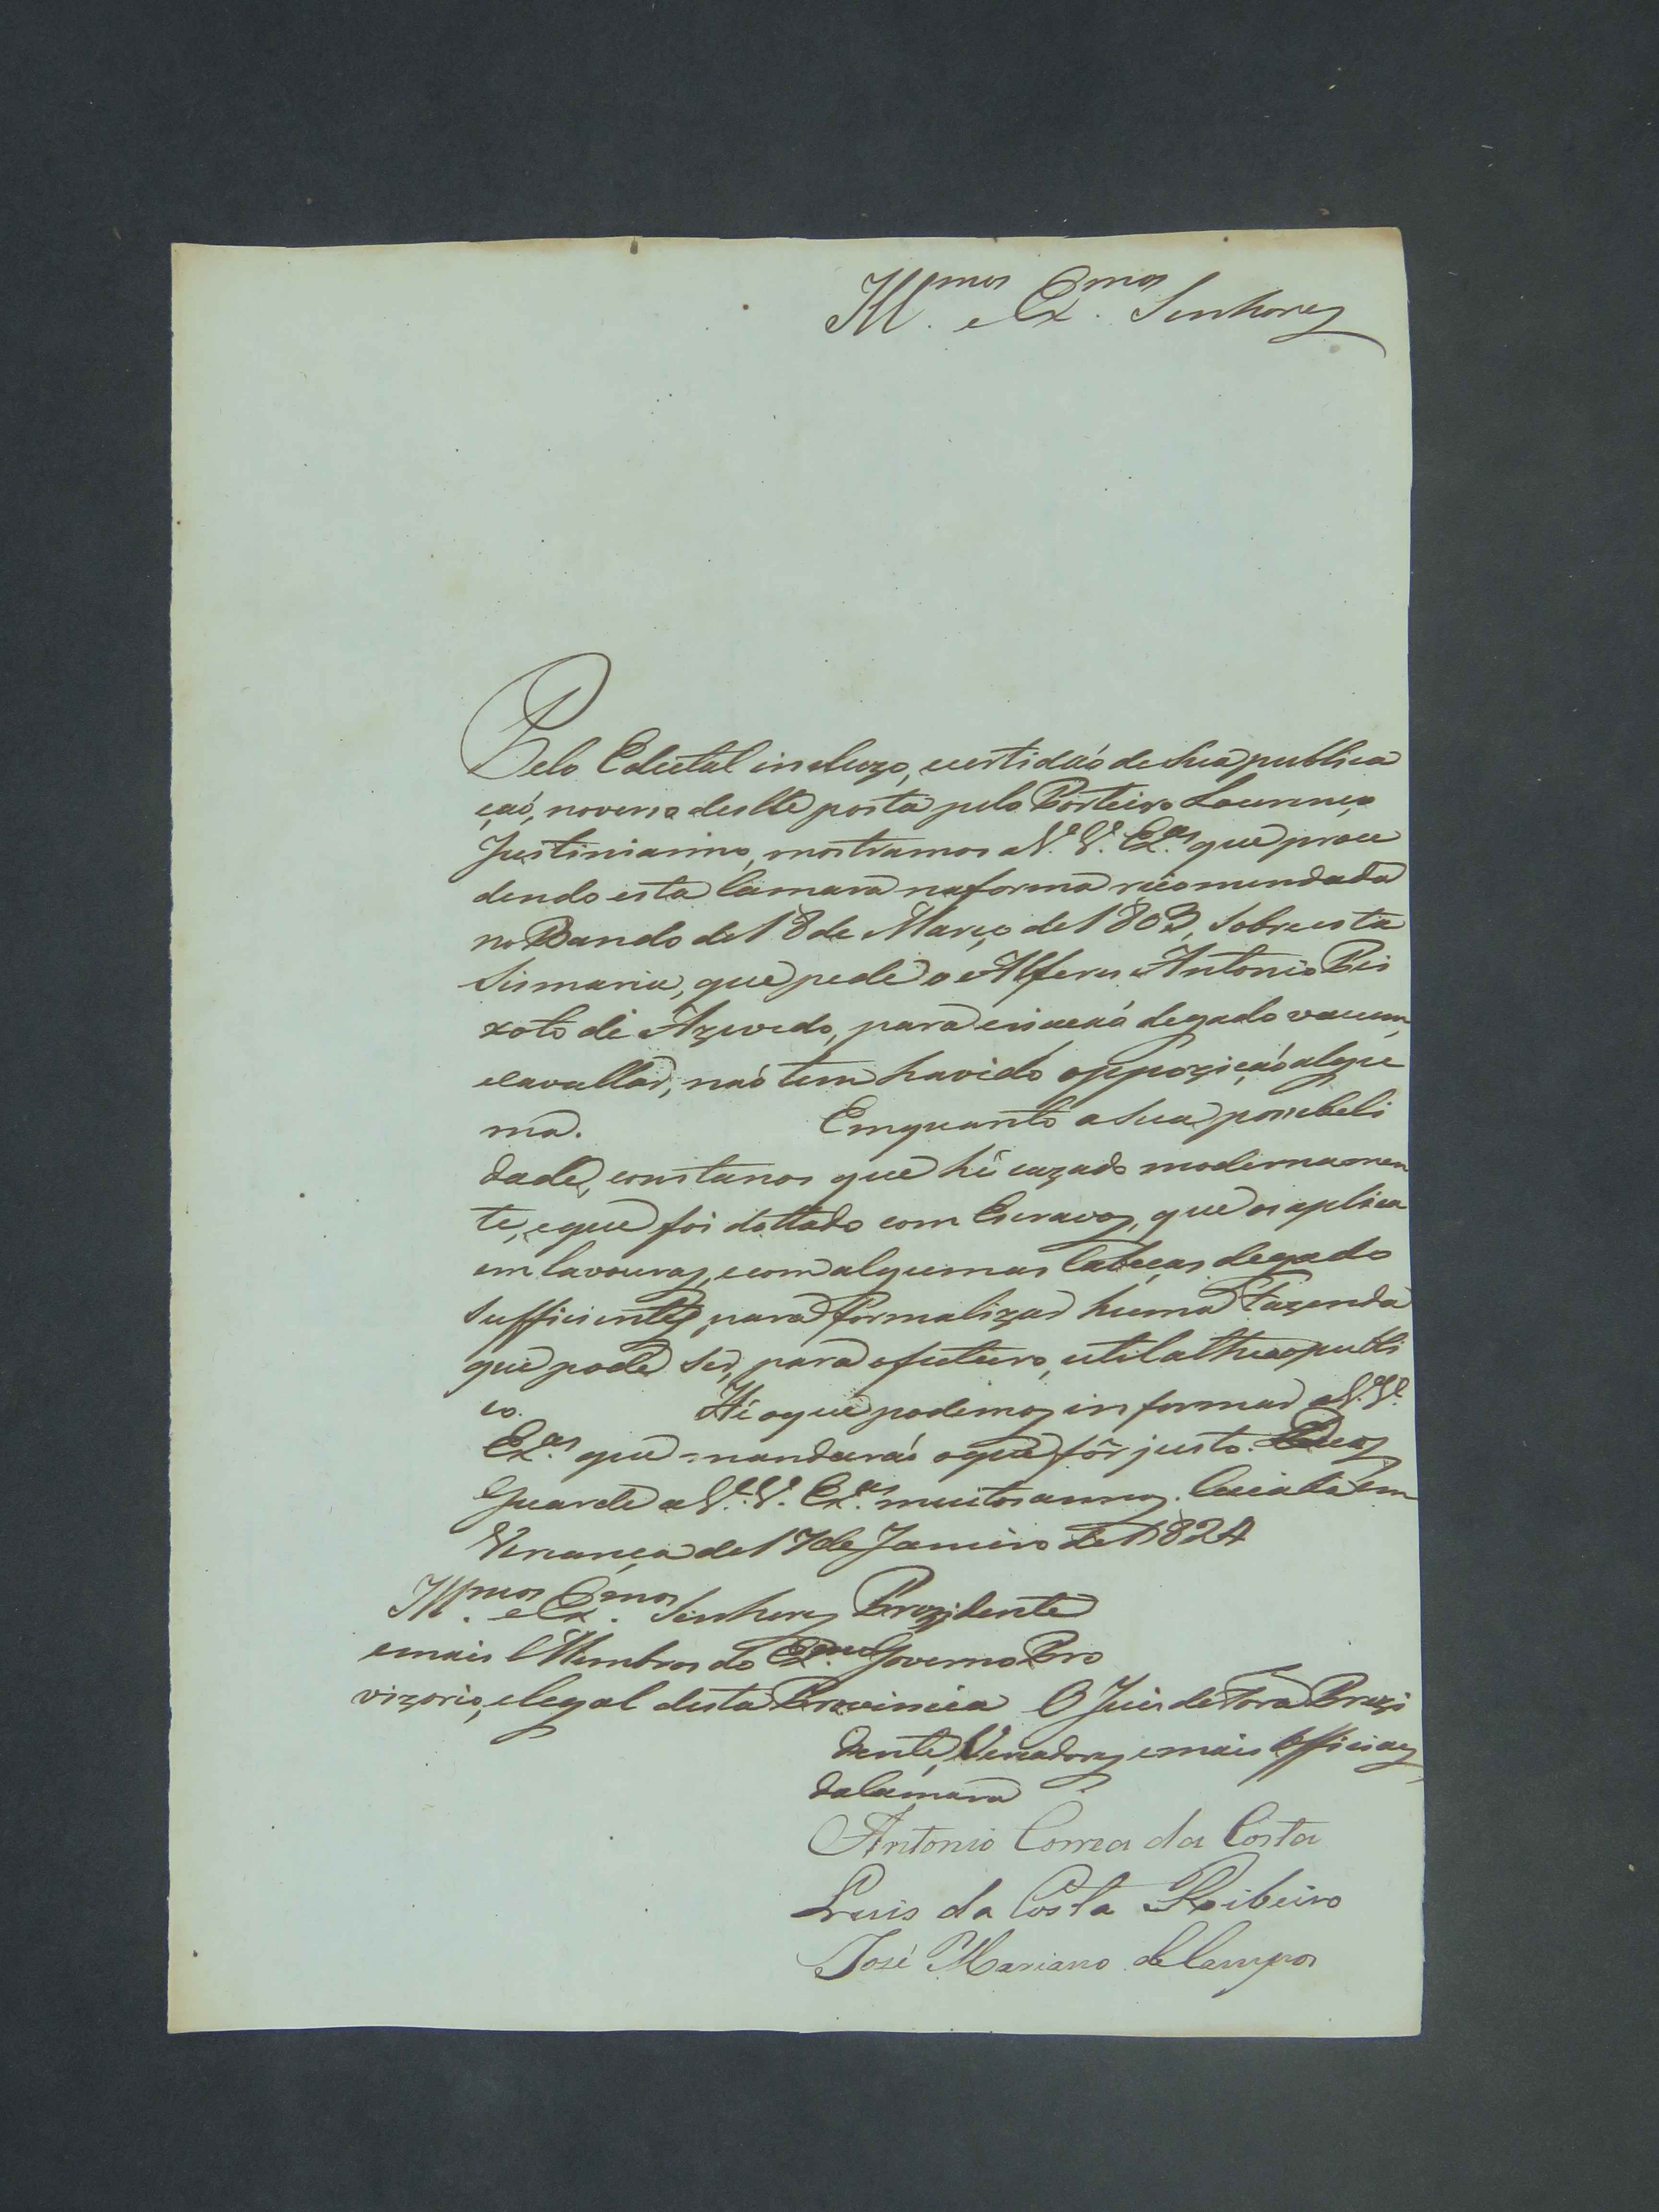 Ill.mos e Ex.mos Senhores
Pelo Edictal incluzo, e certidaõ de Sua publica
çaõ, no verso delle posta pelo Porteiro Lourenço
Justinianno, mostramos a V.V. Ex.as que proce
dendo esta Camara na forma recomendada
no Bando de 18 de Março de 1803, Sobre esta
Sismaria, que pede o Alferes Antonio Pei
xoto de Azevedo, para criacaõ de gado vacum,
e cavallar, naõ tem havido oppoziçaõ algu
ma. Emquanto a Sua possebeli
dade, constanos que hé cazado modernamen
te, e que foi dottado com Escravos, que os aplica
em lavouras, e com algumas Cabeças de gado
Sufficientes, para formalizar huma Fazenda
que pode Ser, para o futuro, util a thé ao publi
co. Hé o que podemos informar a V.V.
Ex.as que mandaraó o que fôr justo. Deos
Guarde a V.V. Ex.as muitos annos. Cuiabá em
Veriança de 17 de Janeiro de 1824
Ill.mos e Ex.mos Senhores Prezidente
e mais Membros do Ex.mo Governo Pro
vizorio, e legal desta Provincia O Juis de Fora Prezi
dente, Veriadores e mais Officiaes
da Camara
Antonio Correa da Costa
Luis da Costa Ribeiro
José Mariano de Campos